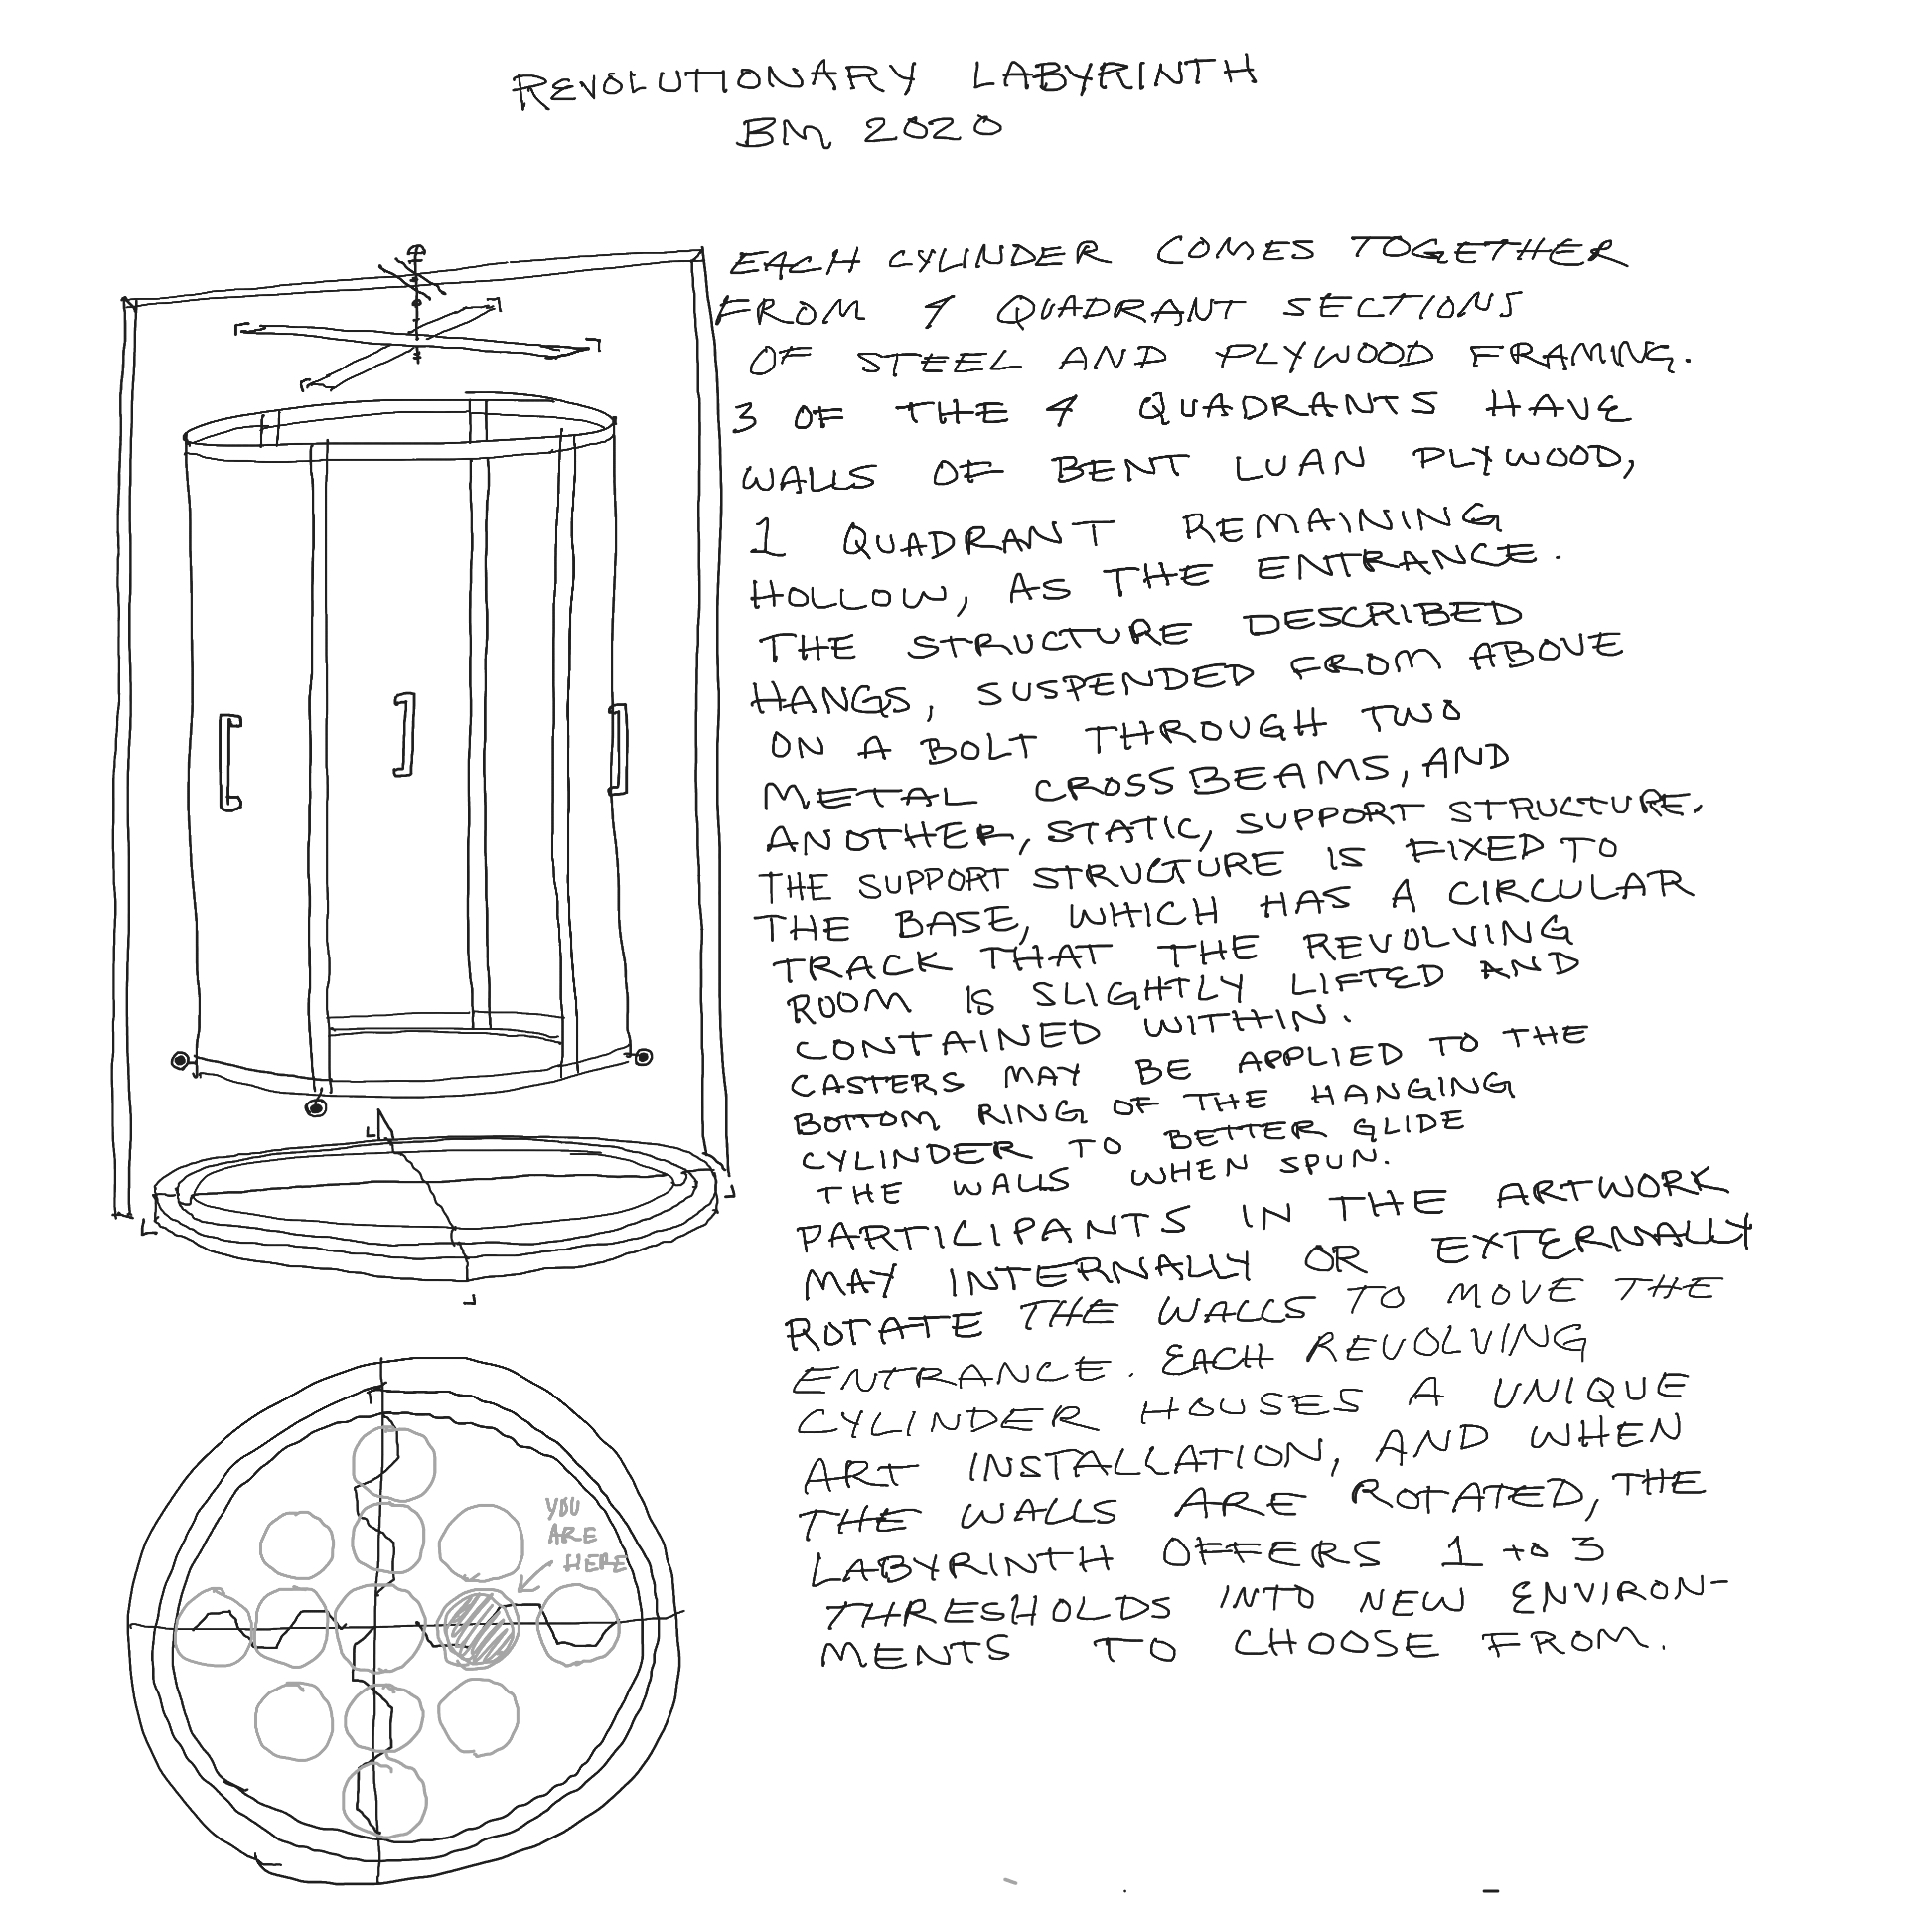 REVOLUTIONARY LABYRINTH
BM 2020
EACH CYLINDER COMES TOGETHER
FROM 4 QUADRANT SECTIONS
OF STEEL AND PLYWOOD FRAMING.
3 OF THE 4 QUADRANTS HAVE
WALLS OF BENT LUAN PLYWOOD,
1 QUADRANT REMAINING
HOLLOW, AS THE ENTRANCE.
THE STRUCTURE DESCRIBED
HANGS, SUSPENDED FROM ABOVE
ON A BOLT THROUGH TWO
METAL CROSSBEAMS, AND
ANOTHER, STATIC, SUPPORT STRUCTURE.
THE SUPPORT STRUCTURE IS FIXED TO
THE BASE, WHICH HAS A CIRCULAR
TRACK THAT THE REVOLVING
ROOM IS SLIGHTLY LIFTED AND
CONTAINED WITHIN.
CASTERS MAY BE APPLIED TO THE
BOTTOM RING OF THE HANGING
CYLINDER TO BETTER GLIDE
THE WALLS WHEN SPUN.
PARTICIPANTS IN THE ARTWORK
MAY INTERNALLY OR EXTERNALLY
ROTATE THE WALLS TO MOVE THE
ENTRANCE. EACH REVOLVING
CYLINDER HOUSES A UNIQUE
ART INSTALLATION, AND WHEN
THE WALLS ARE ROTATED, THE
LABYRINTH OFFERS 1 to 3
THRESHOLDS INTO NEW ENVIRON-
MENTS TO CHOOSE FROM.
YOU
ARE
HERE